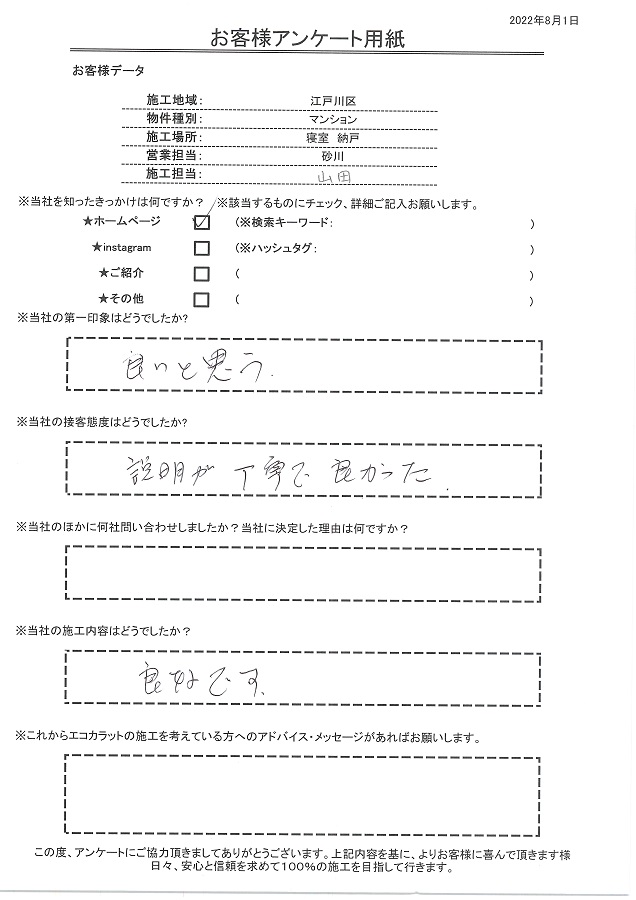 2022年8月1日
お客様アンケート用紙
お客様データ
施工地域: 江戸川区
物件種別: マンション
施工場所: 寝室 納戸
営業担当: 砂川
施工担当: 山田
※当社を知ったきっかけは何ですか? ※該当するものにチェック、詳細ご記入お願いします。
★ホームページ ☑ (※検索キーワード: )
★instagram □ (※ハッシュタグ: )
★ご紹介 □ ( )
★その他 □ ( )
※当社の第一印象はどうでしたか?
良いと思う.
※当社の接客態度はどうでしたか?
説明が丁寧で良かった.
※当社のほかに何社問い合わせしましたか?当社に決定した理由は何ですか?
※当社の施工内容はどうでしたか?
良好です.
※これからエコカラットの施工を考えている方へのアドバイス・メッセージがあればお願いします。
この度、アンケートにご協力頂きましてありがとうございます。上記内容を基に、よりお客様に喜んで頂きます様
日々、安心と信頼を求めて100%の施工を目指して行きます。